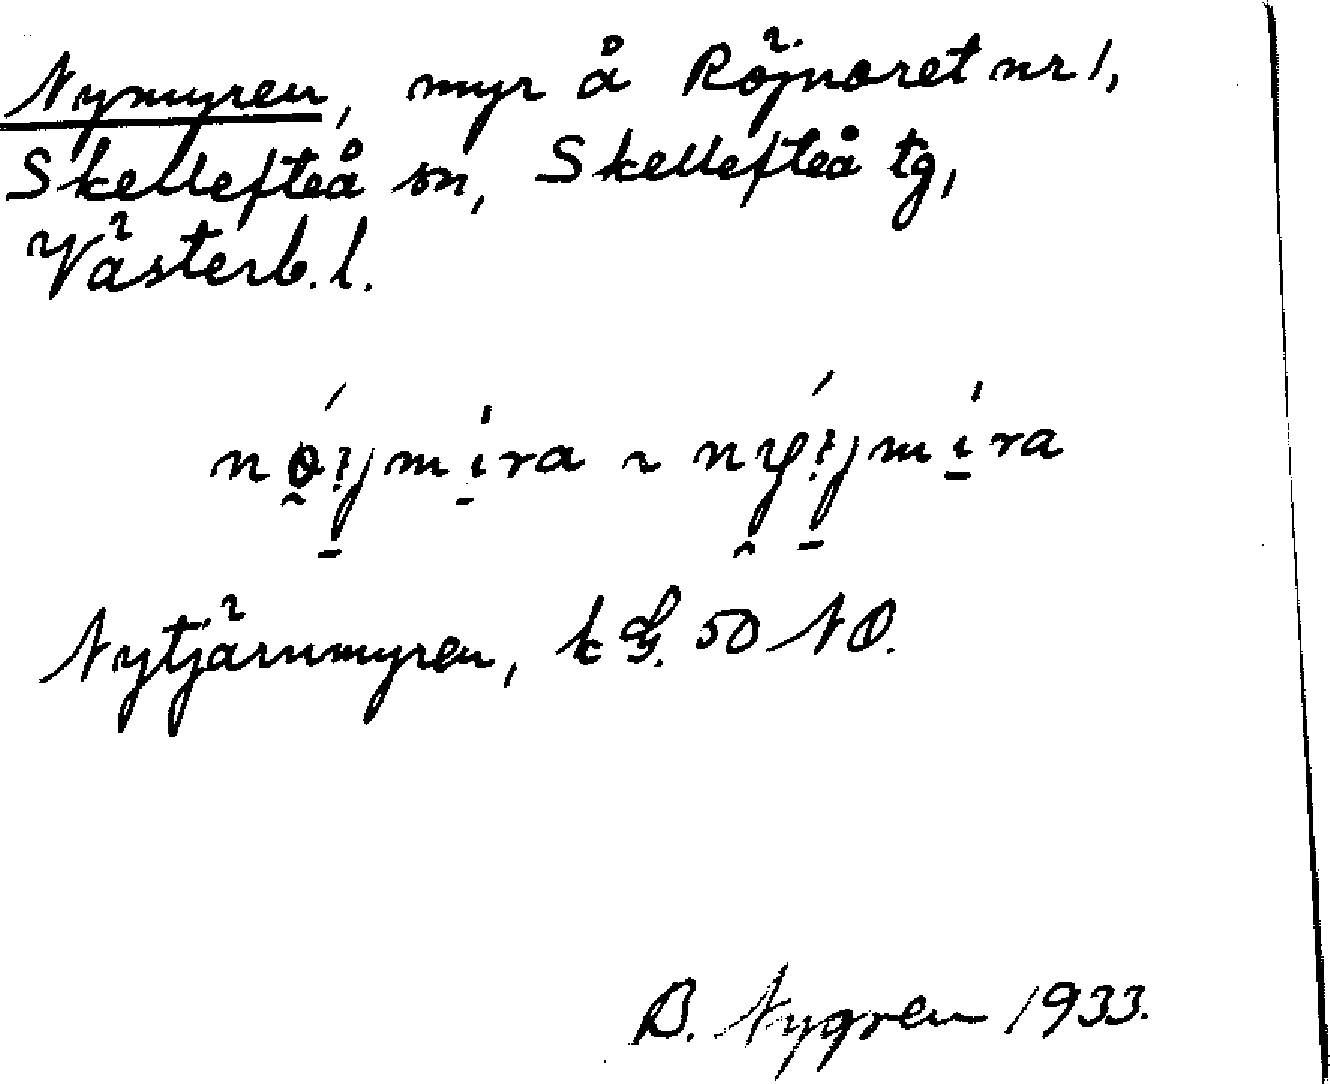 Nymyren, myr å Röjnoret nr 1,
Skellefteå sn, Skellefteå tg,
Västerb. l.
Nytjärnmyren, k G. 50 NO.
B. Nygren 1933.